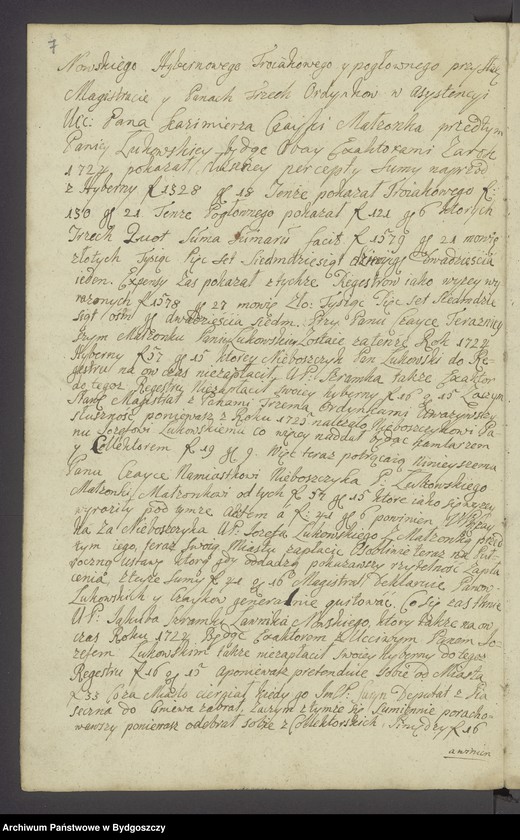 7
Nowskiego Hybernowego Troiakowego y pogłownego przy
Magistracie y Panach Trzech Ordynkow w Asystencyi
Ucc: Pana Kazimierza Czaiki Małzonka przedtym
Paniey Lukowskiey będąc Obay Exaktorami Za Rok
1724 pokazał Własney percepty Sumy naprzod
z Hyberny f 1328 gl 18 Tenze pokazał Troiakowego f:
130 gl 21 Tenze Pogłownego pokazał f 121 gl 6 ktorych
Trzech Quot Suma Sumarū facit f 1579 gl 21 mowię
złotych Tysiąc Pięc Set Siedmdziesiąt dziewięć Dwadziescia
ieden. Expensy zas pokazał z tychże Regestrow iako wyzey wy
razonych f 1578 gl 27 mowię Zło: Tysiąc Pięc Set Siedmdzie
siąt osm gl dwadziescia siedm. Przy Panu Czayce Terazniey
szym Małzonku Pani Lukowski Zostaie za tenze Rok 1724
Hyberny f 57 gl 15 ktorey Nieboszczyk Pan Lukowski do Re-
gestru na on czas niezapłacił, U. P. Skramka takze Exaktor
do tegoz Regestru Niezapłacił swoiey hyberny f 16 g 15 Zaczym
Sławę. Magistrat z Panami Trzema Ordynkami Uwazywszy
Słusznosc poniewasz z Roku 1723 nalezało Nieboszczykowi Pa-
nu Jozefowi Lukowskiemu co więcey naddał będąc Kamlarzem
y Collektorem f 19 gl 9. Więc teraz potrącaią Ninieyszemu
Panu Czayce Namiastkowi Nieboszczyka P. Lukowskiego
Małzonki Małzonkowi od tych f 57 gl 15 ktore iako się wyzey
wyraziły pod tymze aktem f 21 gl 6 powinien
Na Za Nieboszczyka U. P. Jozefa Lukowskiego Małzonka przed
tym iego, teraz Swoią Miastu zapłacic
roczną ustawę ktorą gdy dodadzą pokazawszy rzytelnosc Zapła
cenia, z teyze Sumy f 21 g 16 Magistrat deklaruie Panow
Lukowskich y Czaykow generalnie quitować. Co się zas tknie
U. P. Jakuba Skramki Ławnika Nowskiego, ktory takze na on
czas Roku 1724 Będąc Exaktorem z Ucciwym Panem Jo-
zefem Lukowskim takze niezapłacił swoiey Hyberny do tegoz
Regestru f 16 g 15 A poniewasz pretenduie Sobie od Miasta
f 33 Co za Miasto cierpiał kiedy go Jm P. Deputat z Pia
seczna do Gniewa zabrał. Zaczym z tymze się Sumiennie poracho-
wawszy poniewasz odebrał sobie z Collektorskich pieniędzy f 16
a winien
Archiwum Państwowe w Bydgoszczy